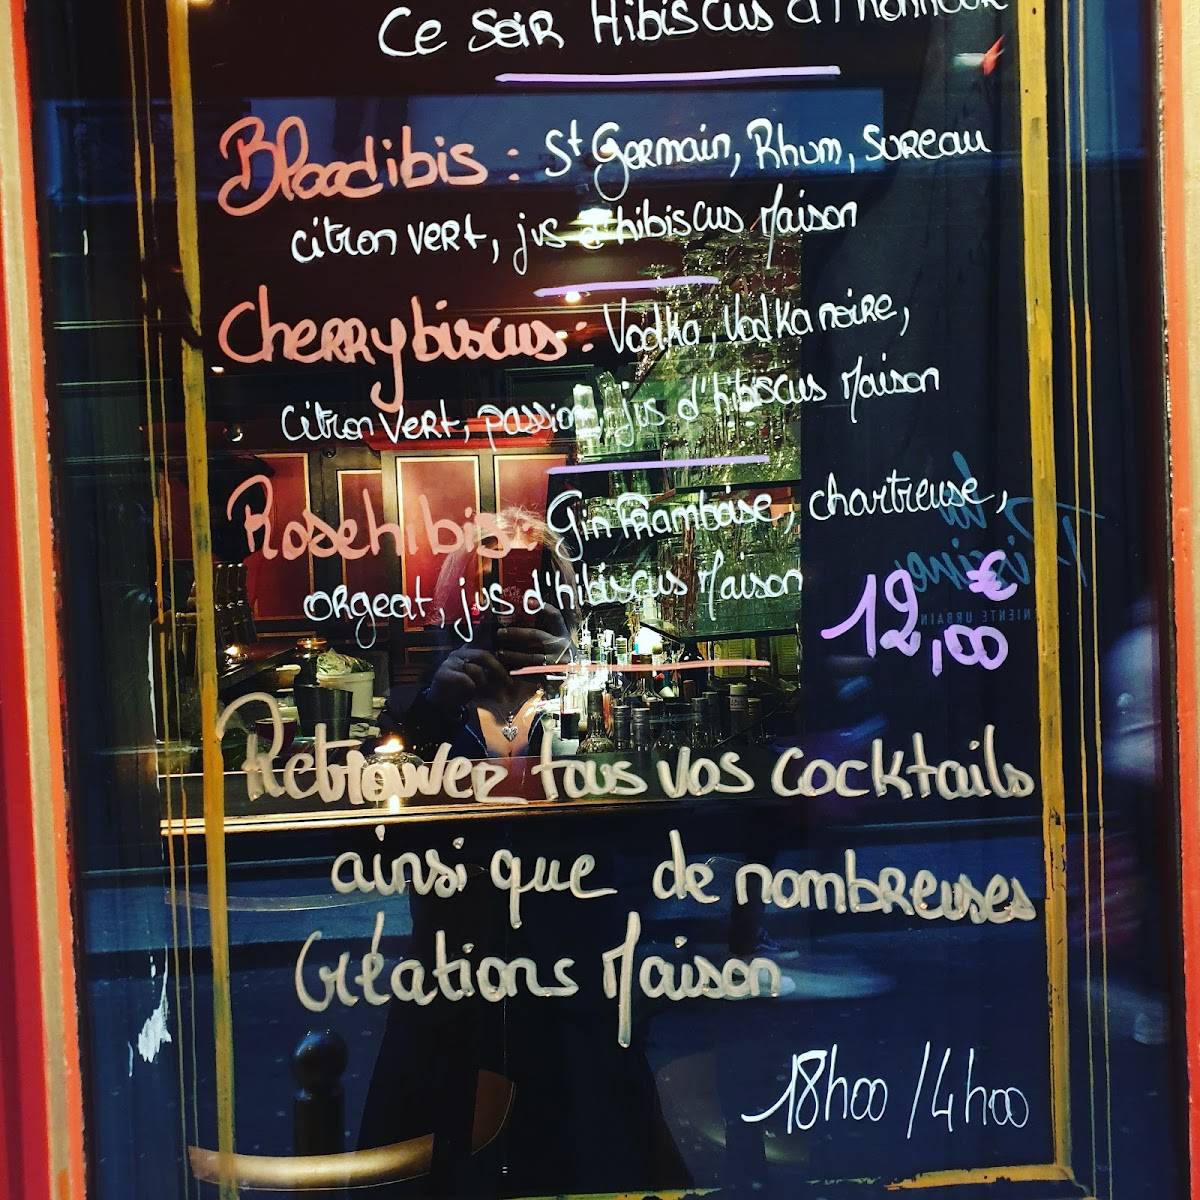 Ce soir Hibiscus à l'honneur
Bloodibis : St Germain, Rhum, sureau
citron vert, jus d'hibiscus Maison
Cherrybiscus : Vodka, Vodka noire,
Citron vert, passion, jus d'hibiscus Maison
Rosehibis : Gin Framboise, chartreuse,
orgeat, jus d'hibiscus Maison
12,00 €
Retrouver tous vos cocktails
ainsi que de nombreuses
Créations Maison
18h00 / 4h00